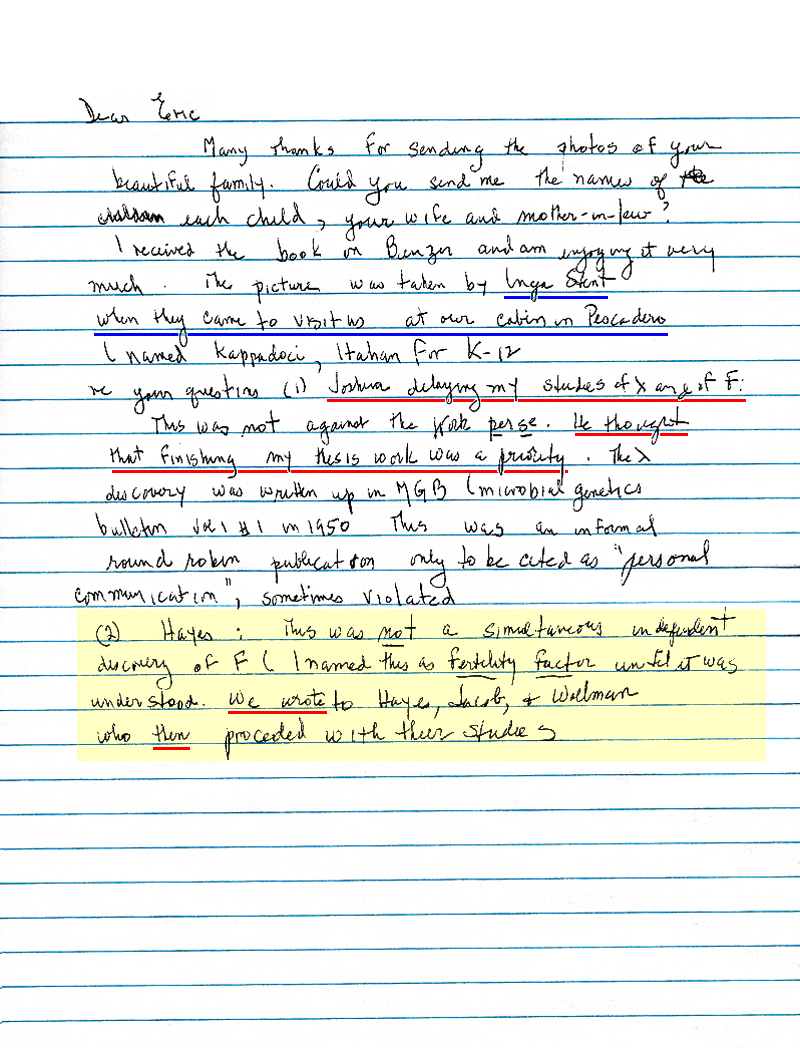 Dear Eric
Many thanks for sending the photos of your
beautiful family. Could you send me the names of the
each child, your wife and mother-in-law?
I received the book on Benzer and am enjoying it very
much. The picture was taken by Inga Stent
when they came to visit us at our cabin in Pescadero
(named Kappadoci, Italian for K-12
re your questions (1) Joshua delaying my studies of λ and of F:
This was not against the work per se. He thought
that finishing my thesis work was a priority. The λ
discovery was written up in MGB (microbial genetics
bulletin Vol 1 #1 in 1950 This was an informal
round robin publication only to be cited as "personal
communication", sometimes violated
(2) Hayes: This was not a simultaneous independent
discovery of F (I named this as fertility factor until it was
understood. We wrote to Hayes, Jacob, & Wollman
who then proceded with their studies